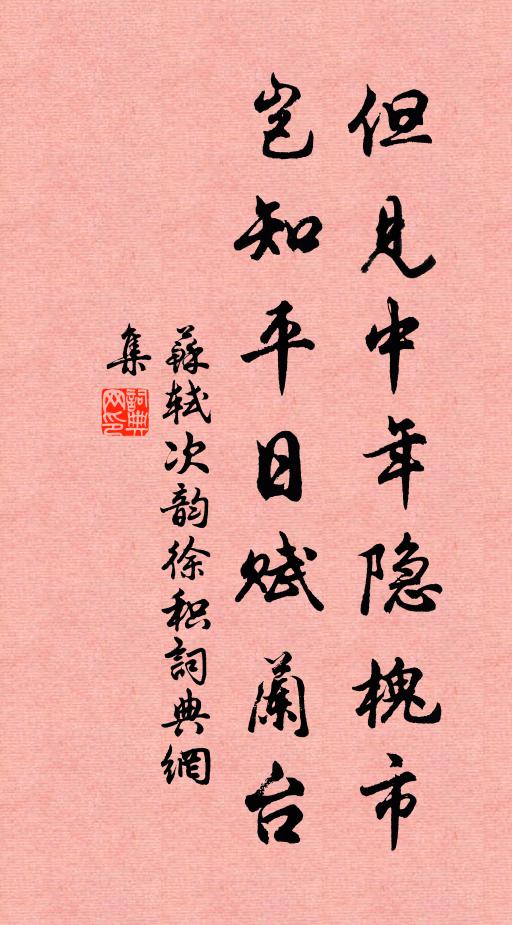 但见中年隐槐市
岂知平日赋兰台
蘇轼次韵徐积詞典網
集
詞典
网印